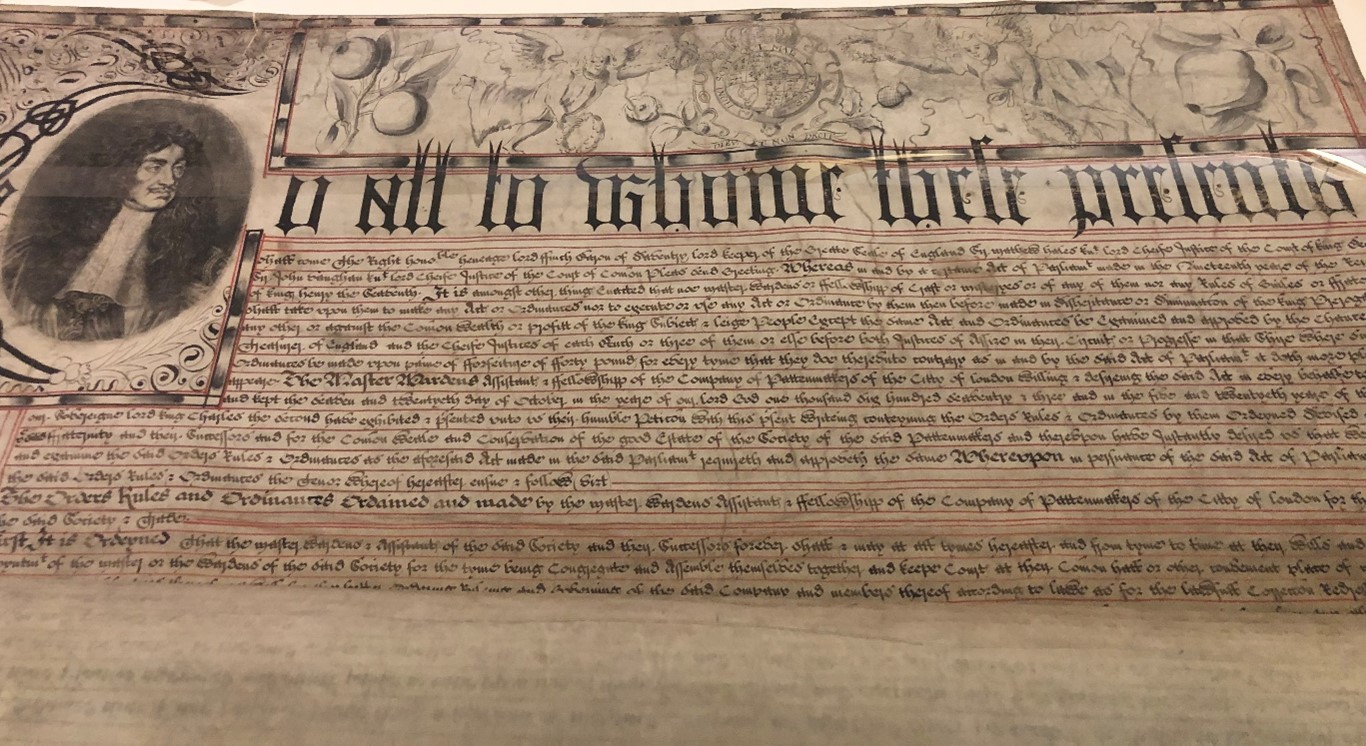 DIEU ET MON DROIT
o all to whome these presents
shall come The Right hono:ble heneage lord ffinch Baron of Daventry lord keeper of the Greate Seale of England Sr. mathew hales knt. lord Cheife Justice of the Court of king
Sr. John vaughan knt. lord Cheife Justice of the Court of Comon Pleas send Greeting. Whereas in and by a Act of Parliamt. made in the Nineteenth yeare of the
of king henry the Seaventh. It is amongst other things Enacted that noe master Wardens or ffellowshipp of Craft or misteryes or of any of them nor any Rulers of Guildes or
shall take upon them to make any Act or Ordinances nor to execute or use any Act or Ordinance by them then before made in disheritance or diminution of the king
any other or against the Comon Wealth or profitt of the king Subiects & leige People Except the same Act and Ordinances be Examined and approved by the
Treasurer of England and the Cheife Justices of each Bench or three of them or else before both Justices of Assize in their Circuit or Progresse in that Shire Where
Ordinances be made upon paine of fforfeiture of fforty pound for every tyme that they doe thereunto contrary as in and by the said Act of Parliamt. it doth more
appeare The Master Wardens Assistants & ffellowshipp of the Company of Pattenmakers of the Citty of london Willing & desireing the said Act in every
and kept the Seaven and twentyeth day of October in the yeare of our lord God one thousand Six hundred Seaventy & three and in the five and twentyeth yeare of
our Sovereigne lord king Charles the Second have exhibited & psented unto us their humble Peticon With this psent Writeing conteyning the Orders Rules & Ordinances by them Ordeyned
said ffraternity and their Successors and for the Comon Weale and Conservation of the good Estate of the Society of the said Pattenmakers and thereupon have Instantly desired us that
and examine the said Orders Rules & Ordinances as the aforesaid Act made in the said Parliamt. requireth and approveth the same Whereupon in pursuance of the said Act of
the said Orders Rules & Ordinances the tenor Whereof hereafter ensue & follow
The Orders Rules and Ordinances Ordained and made by the master Wardens Assistants & ffellowshipp of the Company of Pattenmakers of the Citty of london for
the said Society & Trade.
It is Ordeyned That the master Wardens & Assistants of the said Society and their Successors forever shall & may at all tymes hereafter and from tyme to time at their Wills and
of the master or the Wardens of the said Society for the tyme being Congregate and Assemble themselves together and keepe Court at their Comon hall or other convenient place
and of the said Company and members thereof according to lawe as for the lawfull Correction